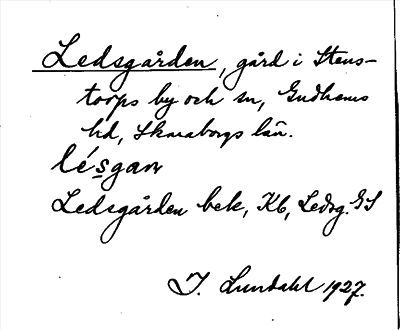 Ledsgården, gård i Stens-
torps by och sn, Gudhems
hd, Skaraborgs län.
lésgan
Ledsgården bek, Kb, Ledsg. GS
I. Lundahl 1927.